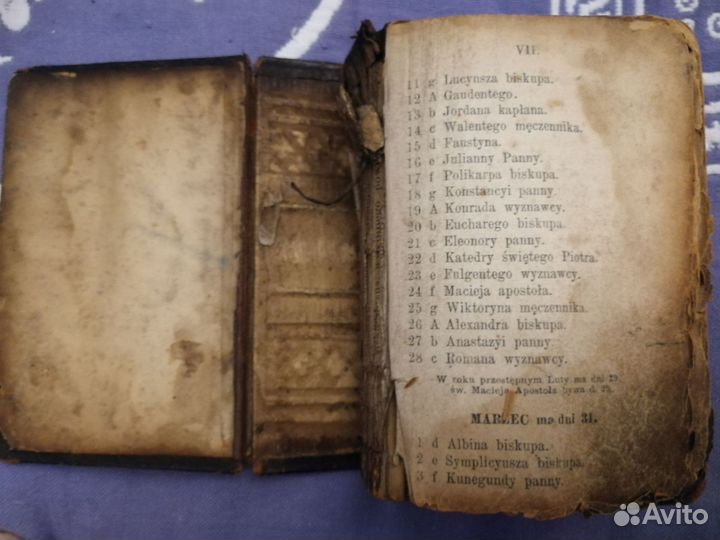 VII.
11 g Lucyusza biskupa.
12 A Gaudentego.
13 b Jordana kapłana.
14 c Walentego męczennika.
15 d Faustyna.
16 e Julianny Panny.
17 f Polikarpa biskupa.
18 g Konstancyi panny.
19 A Konrada wyznawcy.
20 b Eucharego biskupa.
21 c Eleonory panny.
22 d Katedry świętego Piotra.
23 e Fulgentego wyznawcy.
24 f Macieja apostoła.
25 g Wiktoryna męczennika.
26 A Alexandra biskupa.
27 b Anastazyi panny.
28 c Romana wyznawcy.
W roku przestępnym Luty ma dni 29
św. Macieja Apostoła bywa d. 25.
MARZEC ma dni 31.
1 d Albina biskupa.
2 e Symplicyusza biskupa.
3 f Kunegundy panny.
Avito